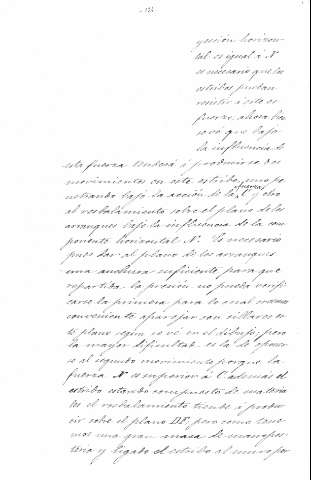 presión horizon-
tal es igual á N
es necesario que los
estribos puedan
resistir á este es-
fuerzo, ahora bien
se vé que bajo
la influencia de
esta fuerza tenderá á producirse dos
movimientos en este estribo, uno pe-
netrando bajo la acción de la fuerza C y otro
al resbalamiento sobre el plano de los
arranques bajo la influencia de la com-
ponente horizontal N. Es necesario
pues dar al plano de los arranques
una anchura suficiente para que
repartida la presión no pueda verifi-
carse la primera para lo cual creemos
conveniente aparejar con sillares es-
te plano segun se vé en el dibujo; pero
la mayor dificultad es la de oponer-
se al segundo movimiento porque la
fuerza N es superior á C ademas el
estribo estando compuesto de materia-
les el resbalamiento tiende á produ-
cir sobre el plano DF, pero como tene-
mos una gran masa de mampos-
tería y ligado el estribo al muro por